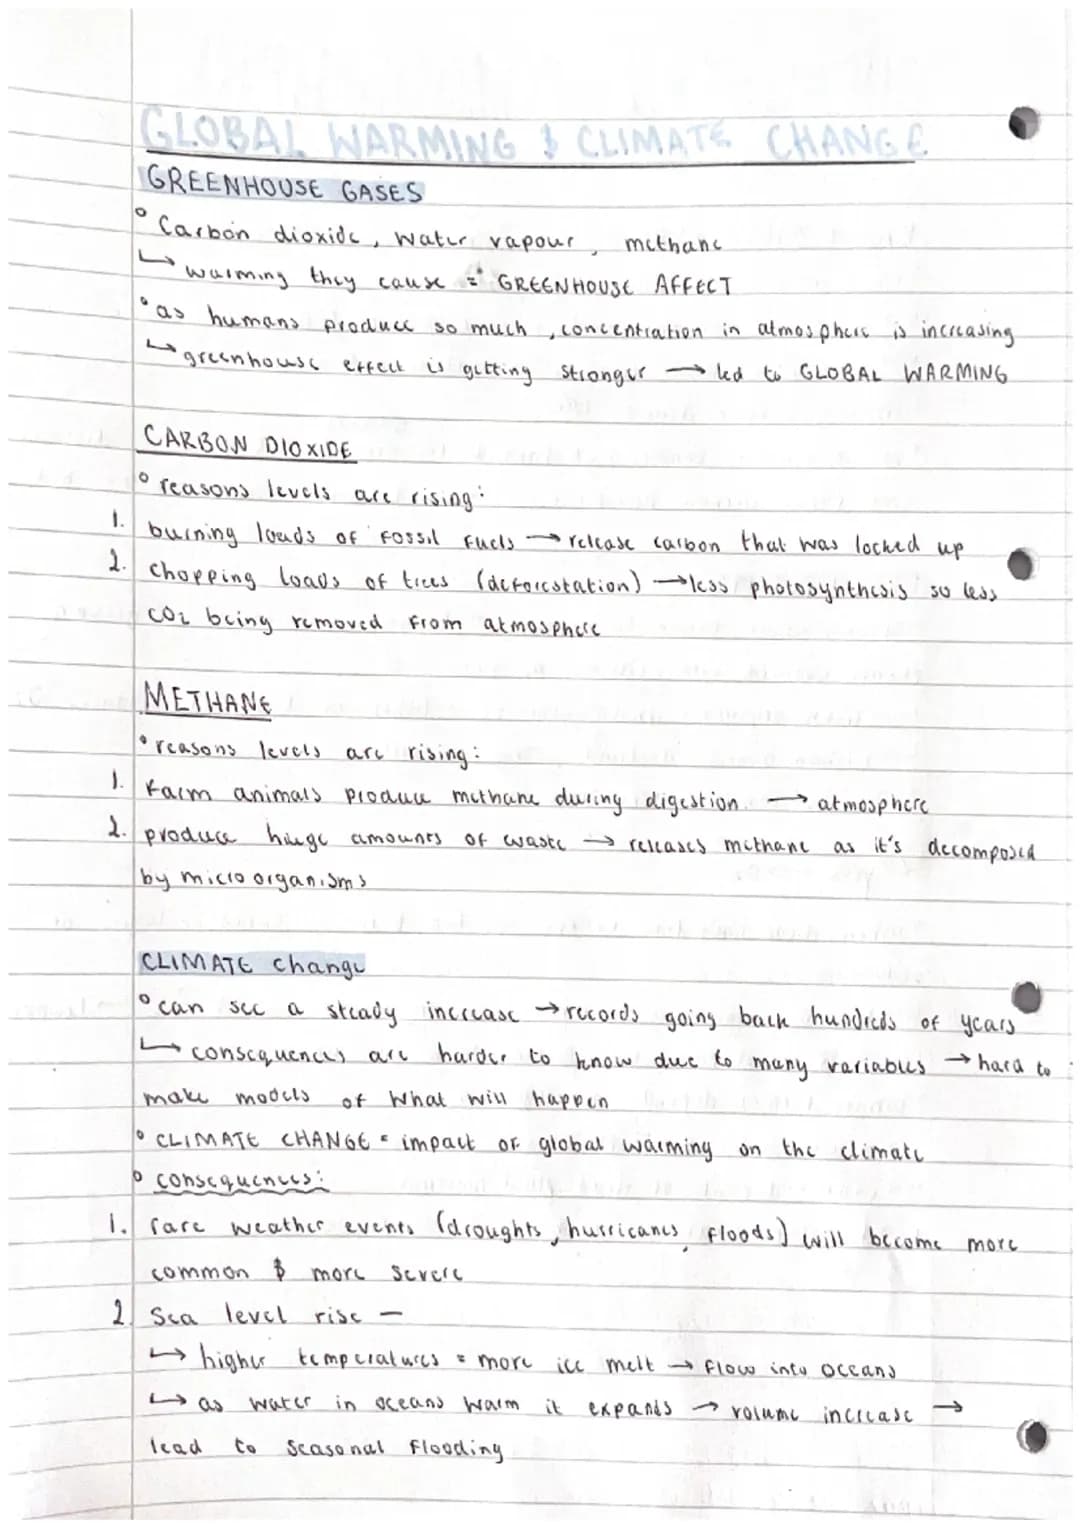 GLOBAL WARMING & CLIMATE CHANGE
GREENHOUSE GASES
° Carbon dioxide, water vapour, methane
↳ warming they cause = GREENHOUSE AFFECT
° as humans produce so much, concentration in atmosphere is increasing
↳ greenhouse effect is getting stronger → led to GLOBAL WARMING
CARBON DIOXIDE
° reasons levels are rising:
1. burning loads of fossil fuels → release carbon that was locked up
2. Chopping loads of trees (deforestation) → less photosynthesis so less
CO2 being removed from atmosphere
METHANE
° reasons levels are rising:
1. Farm animals produce methane during digestion. → atmosphere
2. produce huge amounts of waste → releases methane as it's decomposed
by micro organisms
CLIMATE change
° can see a steady increase → records going back hundreds of years
↳ consequences are harder to know due to many variables → hard to
make models of what will happen
° CLIMATE CHANGE = impact of global warming on the climate
° consequences:
1. rare weather events (droughts, hurricanes, floods) will become more
common & more severe
2. Sea level rise –
↳ higher temperatures = more ice melt → flow into oceans
↳ as water in oceans warm it expands → volume increase →
lead to seasonal flooding